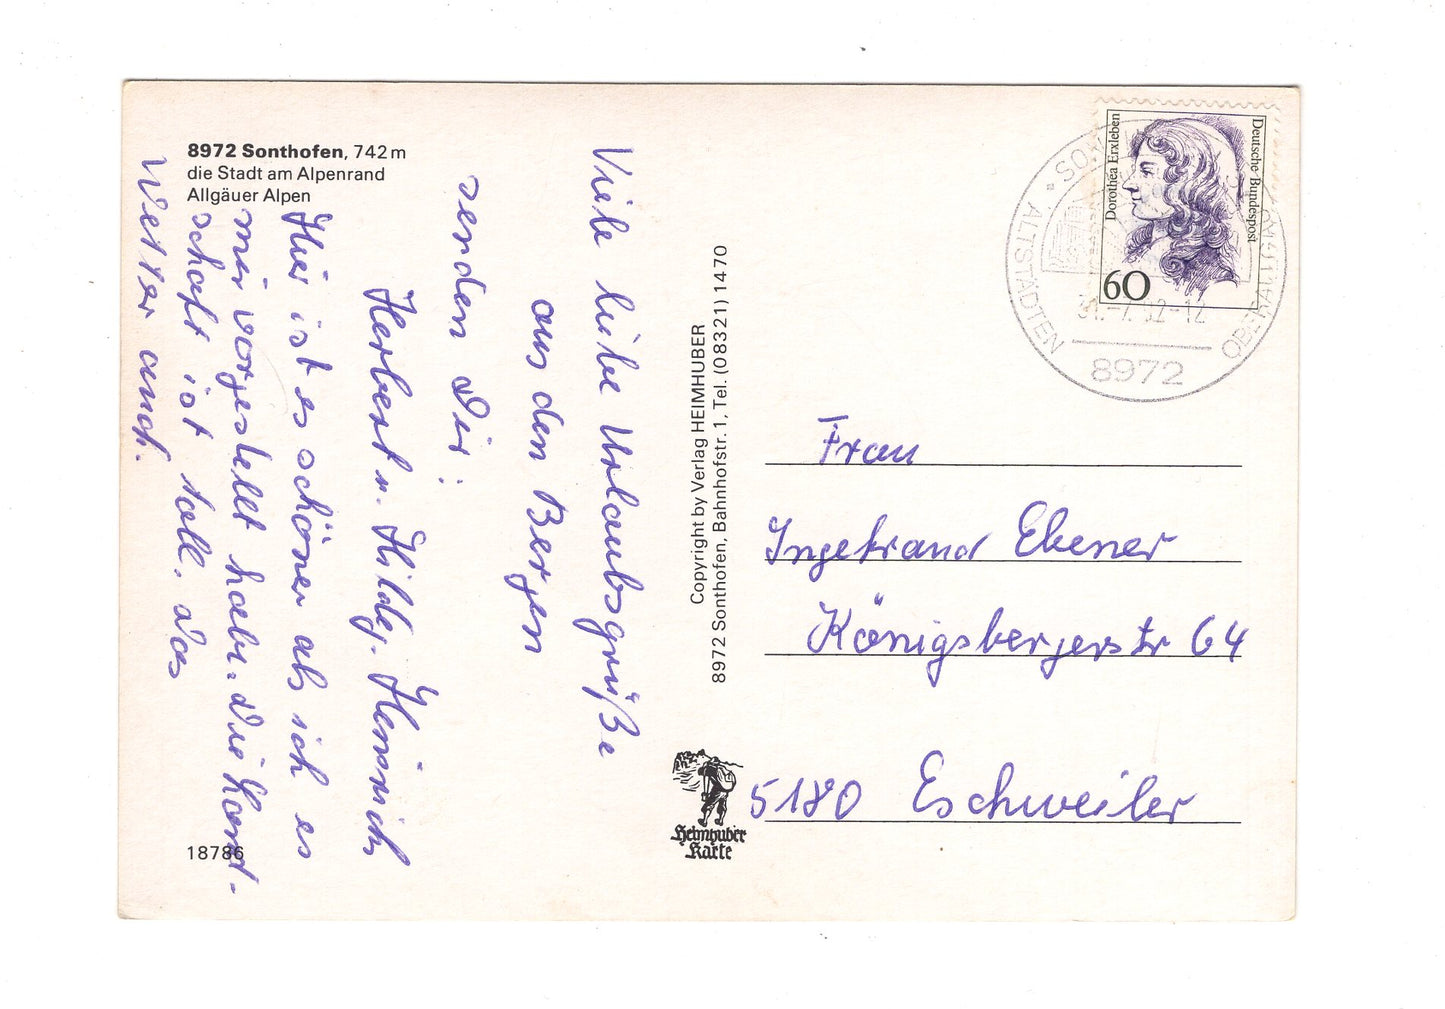 8972 Sonthofen, 742 m
die Stadt am Alpenrand
Allgäuer Alpen
Viele liebe Urlaubsgrüße
aus den Bergen
senden Dir
Herbert u. Hildeg. Heinrichs
Hier ist es schöner als ich es
mir vorgestellt habe. Die Land-
schaft ist toll. Das
Wetter auch.
18786
Copyright by Verlag HEIMHUBER
8972 Sonthofen, Bahnhofstr. 1, Tel. (0 83 21) 14 70
Heimhuber
Karte
Dorothea Erxleben
Deutsche Bundespost
60
ALTSTÄDTEN
8972
Frau
Ingetraud Ebener
Königsbergerstr 64
5180 Eschweiler